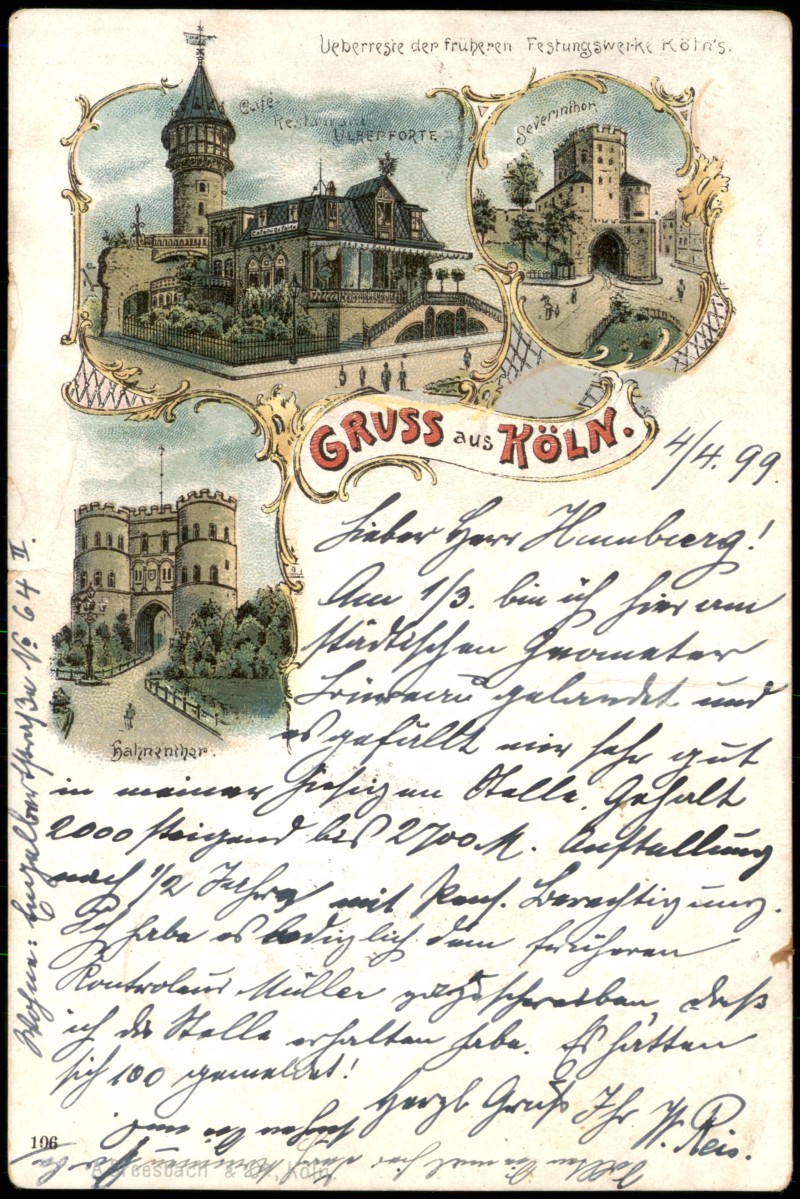 Ueberreste der früheren Festungswerke Köln's.
Café
Restaurant
ULREPFORTE
Severinthor.
GRUSS aus KÖLN.
4/4. 99.
Lieber Herr Humburg!
Am 1/3. bin ich hier am
städtischen Geometer
Büreau gelandet und
es gefällt mir sehr gut
Hahnenthor.
in meiner hiesigen Stelle. Gehalt
2000 steigend bis 2700 M. Anstellung
nach 1/2 Jahre mit Pens. Berechtigung.
Ich habe es lediglich dem früheren
Kontroleur Müller zuzuschreiben, daß
ich die Stelle erhalten habe. Es hatten
sich 100 gemeldet!
Herzl Gruß Ihr W. Reis.
Wohne: Engelbertstraße No 64 II.
106
& Co., Köln.